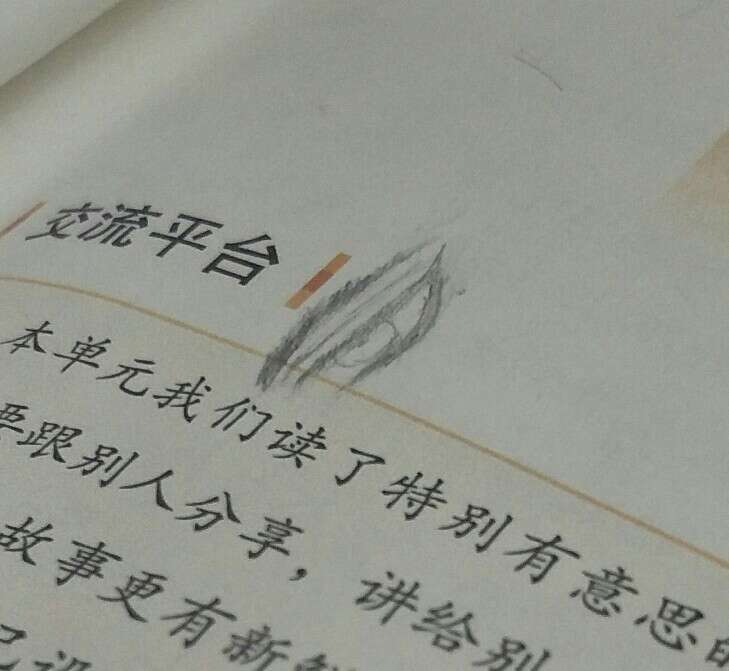 交流平台
本单元我们读了特别有意思的
要跟别人分享，讲给别
故事更有新